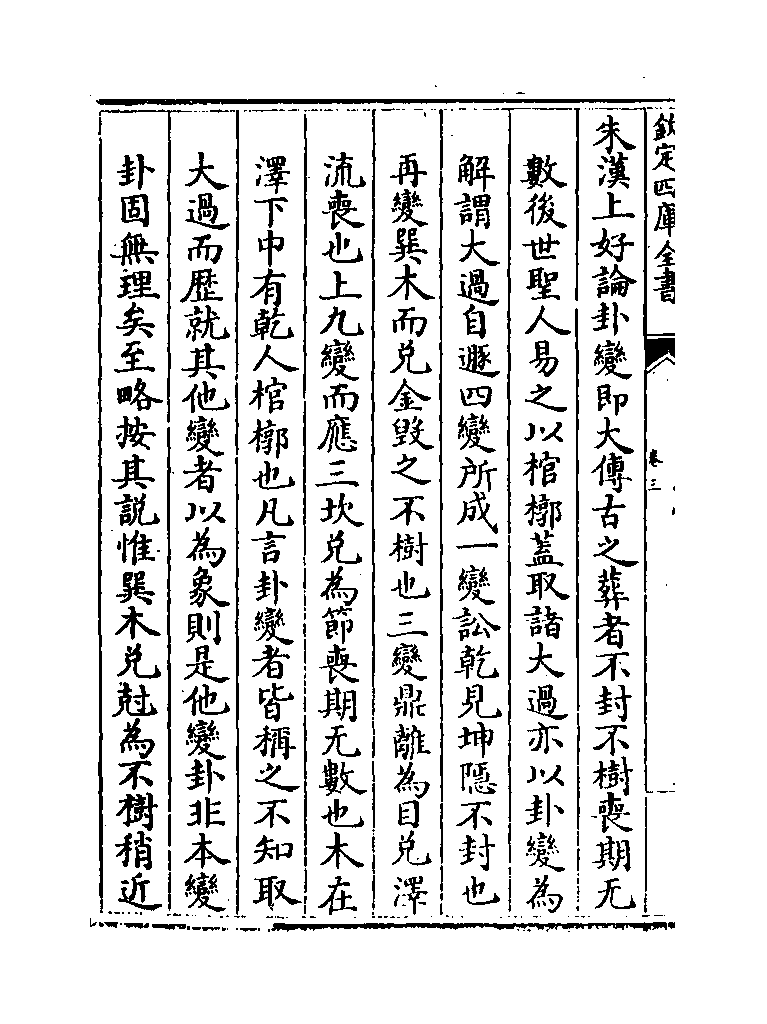 欽定四庫全書
卷三
朱漢上好論卦變即大傳古之葬者不封不樹喪期无
數後世聖人易之以棺槨蓋取諸大過亦以卦變為
解謂大過自遯四變所成一變訟乾見坤隱不封也
再變巽木而兑金毀之不樹也三變鼎離為目兑澤
流喪也上九變而應三坎兑為節喪期无數也木在
澤下中有乾人棺槨也凡言卦變者皆稱之不知取
大過而歴就其他變者以為象則是他變卦非本變
卦固無理矣至略按其説惟巽木兑尅為不樹稍近